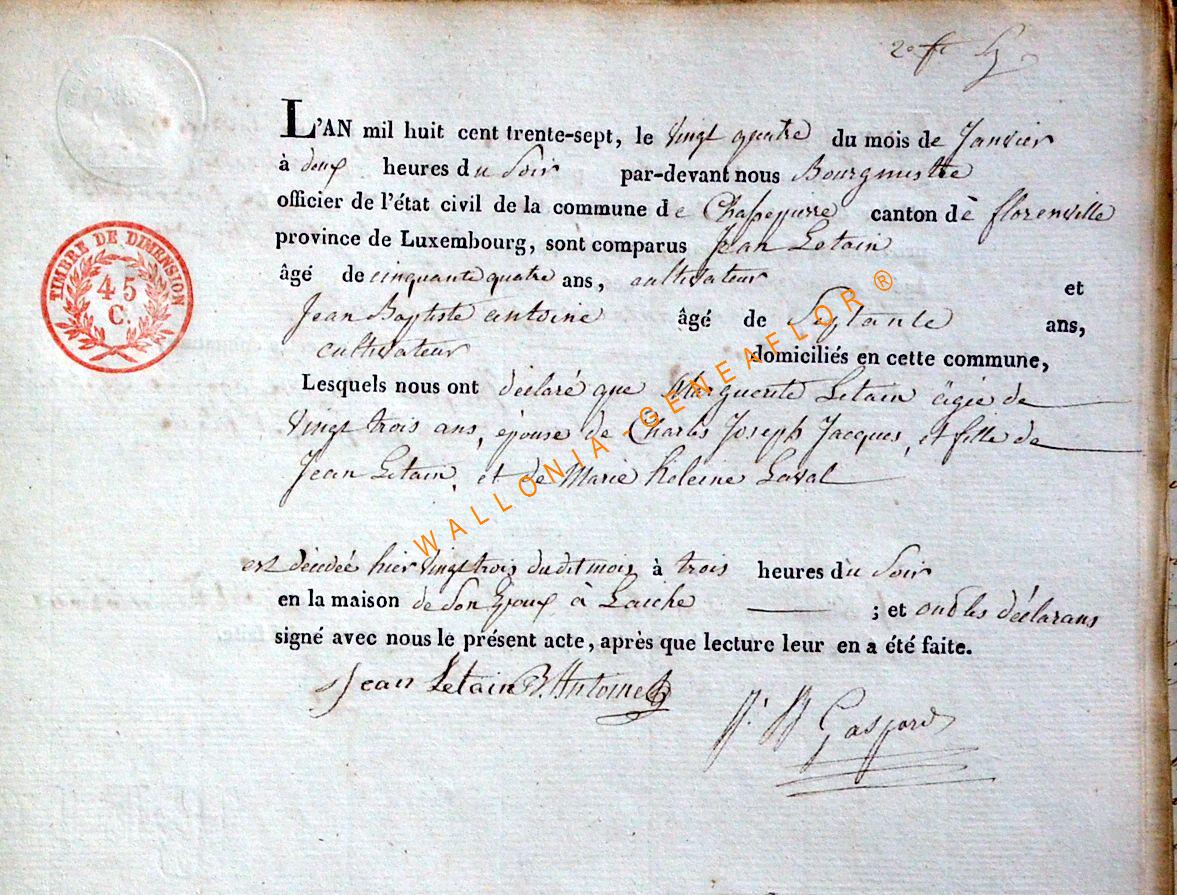 L'AN mil huit cent trente-sept, le vingt quatre du mois de Janvier
à deux heures du Soir par-devant nous Bourgmestre
officier de l'état civil de la commune de Chassepierre canton de florenville
province de Luxembourg, sont comparus Jean Letain
âgé de cinquante quatre ans, cultivateur et
Jean Baptiste antoine âgé de Septante ans,
cultivateur domiciliés en cette commune,
Lesquels nous ont déclaré que Marguerite Letain âgée de
vingt trois ans, épouse de Charles Joseph Jacques, et fille de
Jean Letain, et de Marie héleine Laval
est décédée hier vingt trois dudit mois à trois heures du Soir
en la maison de son Epoux à Laiche ; et ont les déclarans
signé avec nous le présent acte, après que lecture leur en a été faite.
Jean Letain B. Antoine
J. B Gaspard
TIMBRE DE DIMENSION
45
C.
WALLONIA-GENEAFLOR®